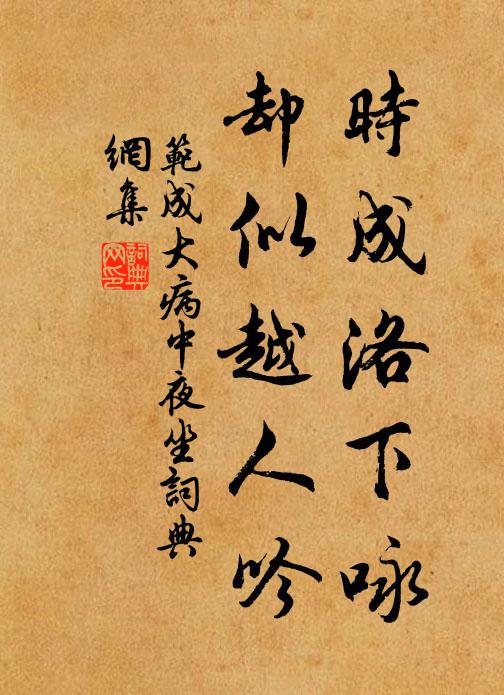 時成洛下咏
却似越人吟
範成大病中夜坐詞典
網集
詞典
网印